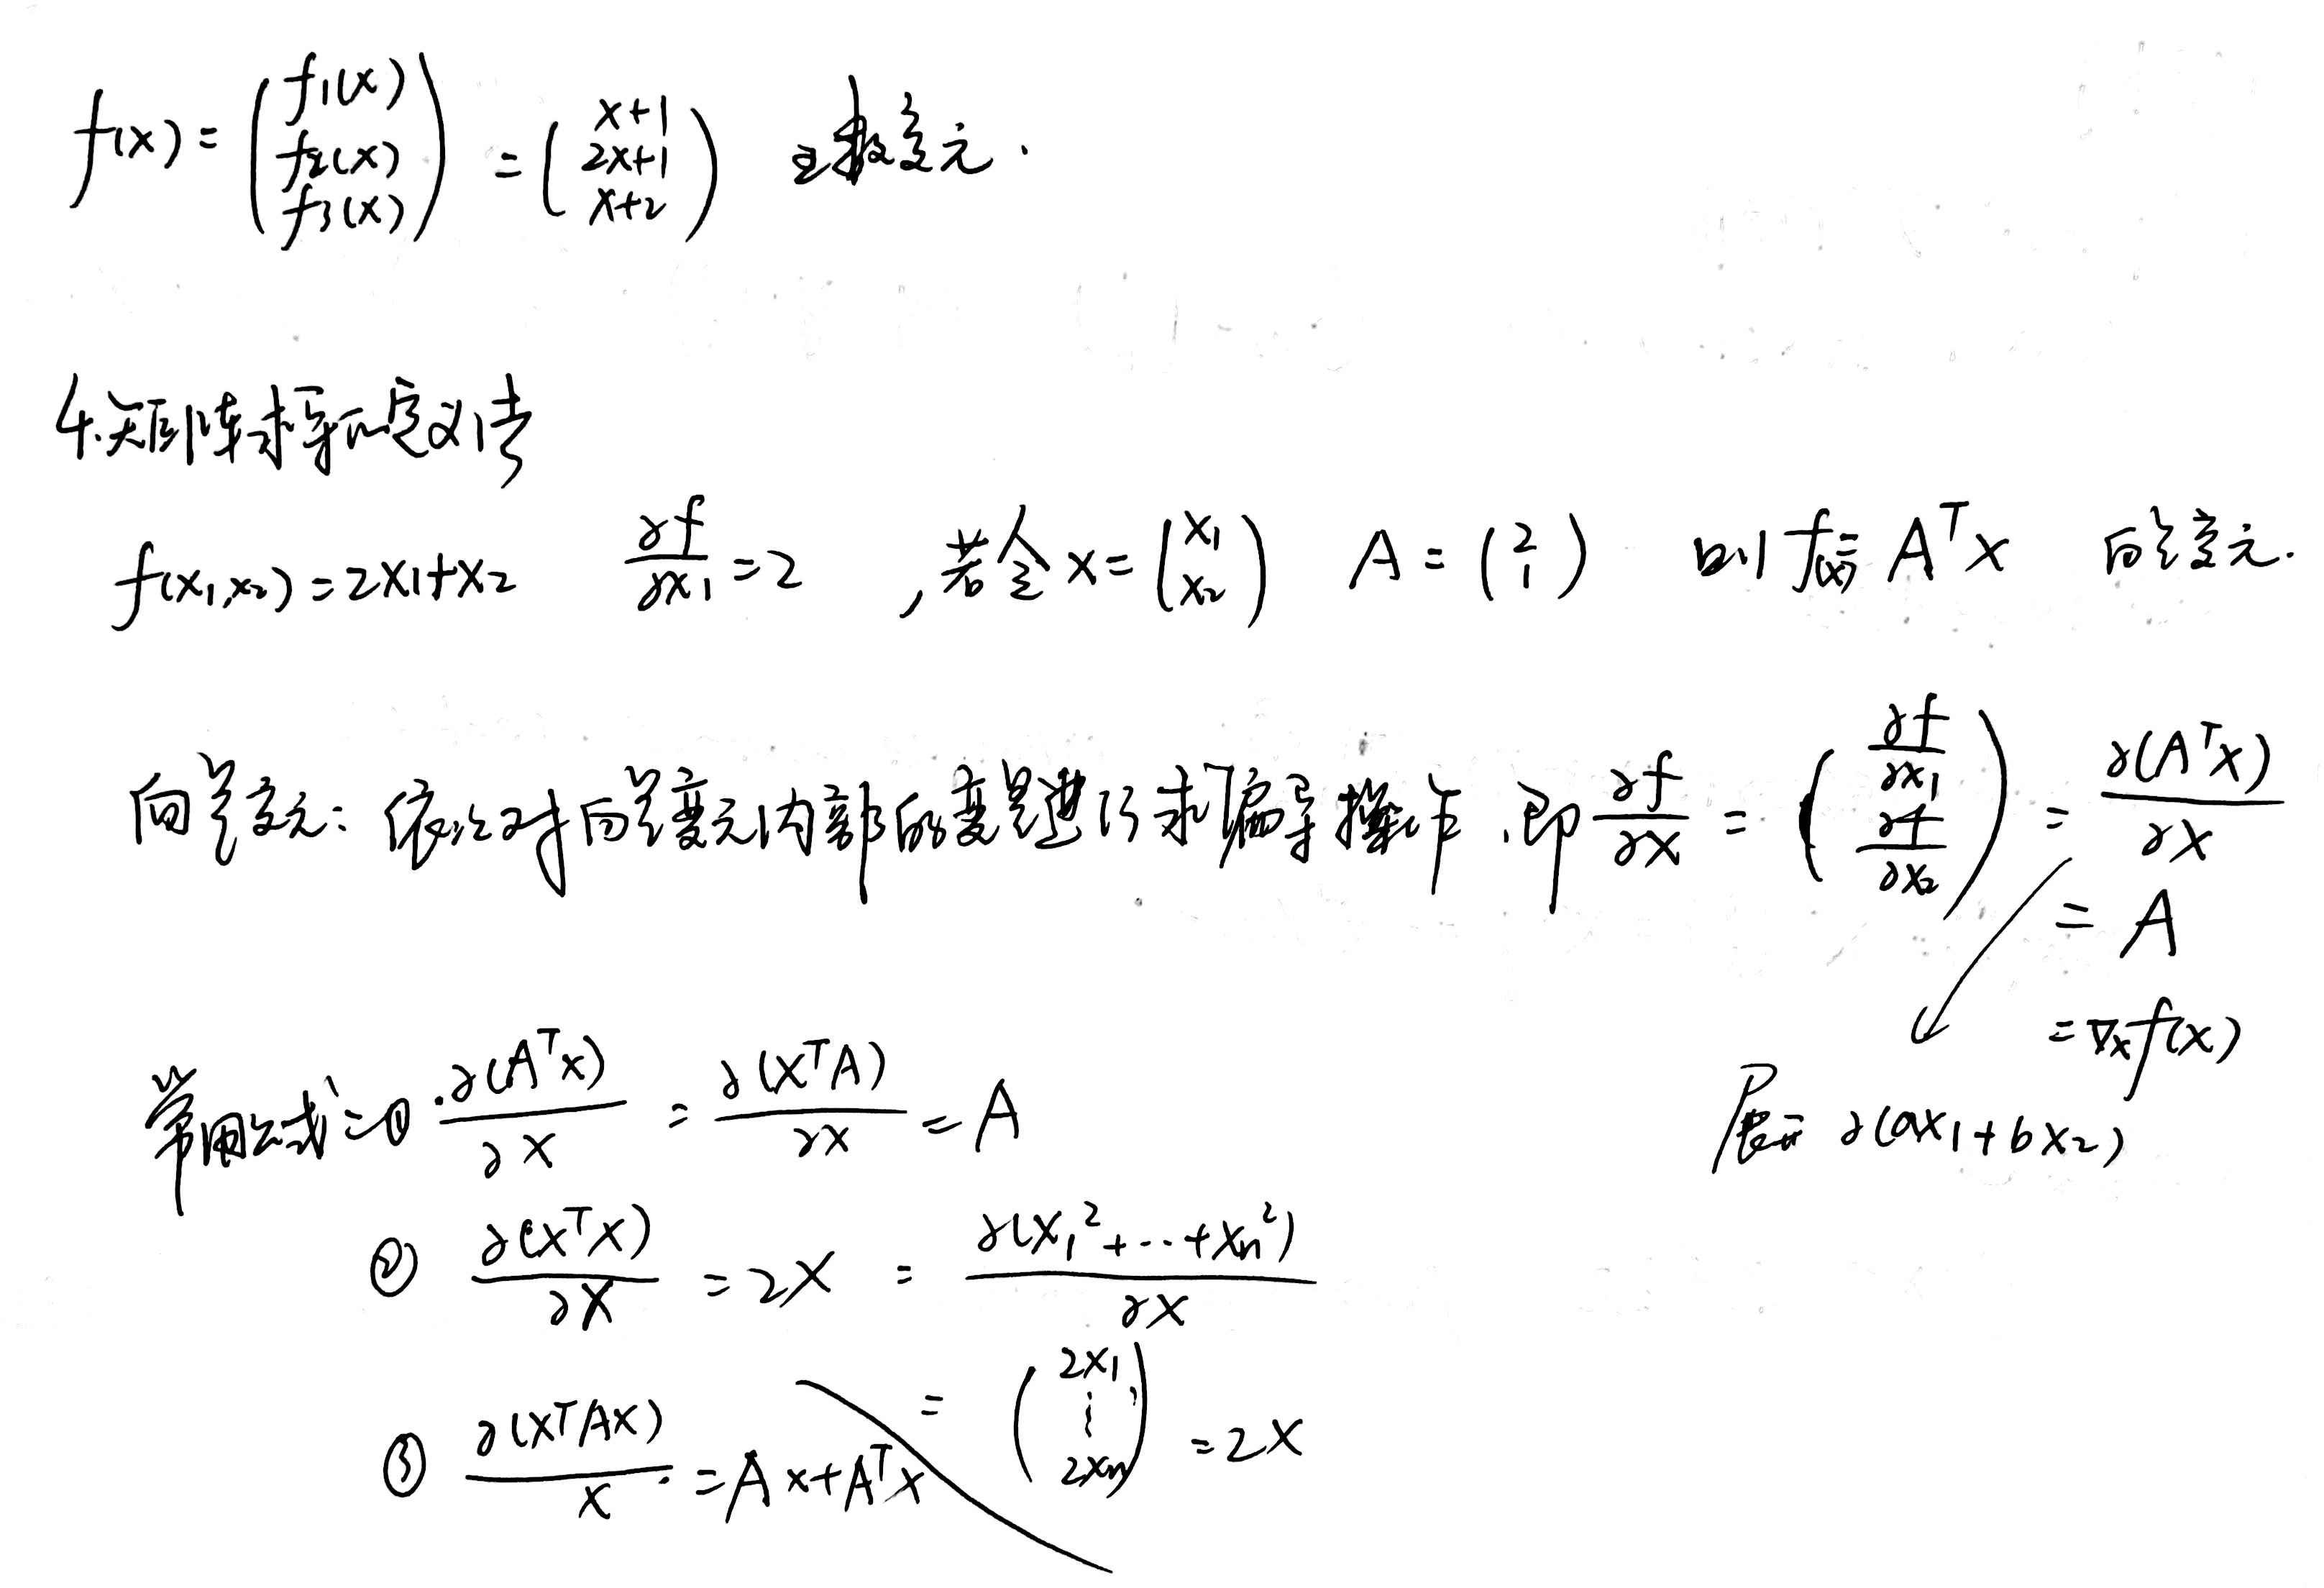 f(x) = (f1(x) f2(x) f3(x)) = (x+1 2x+1 x+2) 变元.
4.矩阵求导的定义法
f(x1,x2) = 2x1+x2 ∂f/∂x1 = 2 ,若令 x = (x1 x2) A = (2 1) 则 f(x) = A^T x 向量变元.
向量变元: 依次对向量变元内部的变量进行求偏导操作,即 ∂f/∂x = (∂f/∂x1 ∂f/∂x2) = ∂(A^T x)/∂x
= A
= ∇x f(x)
常用公式: ① ∂(A^T x)/∂x = ∂(x^T A)/∂x = A
∂(ax1+bx2)
② ∂(x^T x)/∂x = 2x = ∂(x1²+…+xn²)/∂x
= (2x1 ⋮ 2xn) = 2x
③ ∂(x^T Ax)/x = Ax+A^T x